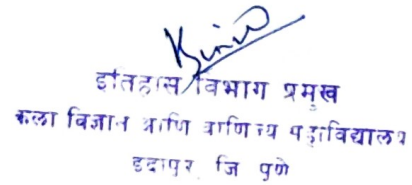 इतिहास विभाग प्रमुख
कला विज्ञान आणि वाणिज्य महाविद्यालय
इंदापूर जि पुणे